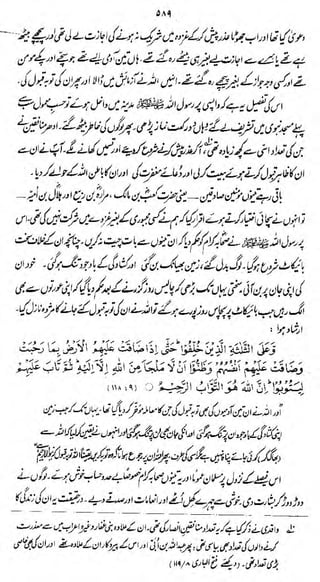 ۵۸۹
دعویٰ کیا تھا اور اب جھوٹا عذر پیش کر کے غزوہ میں شریک نہ ہونے کی اجازت لے لی تھی اور پیچھے بیٹھے
تھے یا سرے سے اجازت لیے بغیر ہی بیٹھے رہ گئے تھے۔ ہاں تین آدمی ایسے تھے جو سچے اور پکے مومن
تھے اور کسی وجہ جواز کے بغیر پیچھے رہ گئے تھے۔ انہیں اللہ نے آزمائش میں ڈالا اور پھر ان کی توبہ قبول کی۔
اس کی تفصیل یہ ہے کہ واپسی پر رسول اللہ ﷺ مدینہ میں داخل ہوئے تو حسب معمول سب سے
پہلے مسجد نبوی میں تشریف لے گئے وہاں دو رکعت نماز پڑھی۔ پھر لوگوں کی خاطر بیٹھ گئے۔ ادھر منافقین نے
جن کی تعداد اسی سے کچھ زیادہ تھی، آ کر عذر پیش کرنے شروع کر دیئے اور قسمیں کھانے لگے۔ آپ نے ان سے
ان کا ظاہر قبول کرتے ہوئے بیعت کر لی اور دعائے مغفرت کی اور ان کا باطن اللہ کے حوالے کر دیا۔
باقی رہے تینوں مومنین صادقین۔ یعنی حضرت کعب بن مالک، مرارہ بن ربیع اور ہلال بن امیہ۔
تو انہوں نے سچائی اختیار کرتے ہوئے اقرار کیا کہ ہم نے کسی مجبوری کے بغیر غزوے میں شرکت نہیں کی تھی۔ اس
پر رسول اللہ ﷺ نے صحابہ کرام کو حکم دیا کہ ان تینوں سے بات چیت نہ کریں۔ چنانچہ ان کے خلاف سخت
بائیکاٹ شروع ہو گیا۔ لوگ بدل گئے، زمین بھیانک بن گئی اور کشادگی کے باوجود تنگ ہو گئی۔ خود ان
کی اپنی جان پر بن آئی۔ سختی یہاں تک بڑھی کہ چالیس روز گزرنے کے بعد حکم دیا گیا کہ اپنی عورتوں سے بھی
الگ رہیں جب بائیکاٹ پر پچاس روز پورے ہو گئے تو اللہ نے ان کی توبہ قبول کئے جانے کا مژدہ نازل کیا۔
ارشاد ہوا :
وَعَلَى الثَّلٰثَةِ الَّذِيْنَ خُلِّفُوْا ۭ حَتّٰٓى اِذَا ضَاقَتْ عَلَيْهِمُ الْاَرْضُ بِمَا رَحُبَتْ
وَضَاقَتْ عَلَيْهِمْ اَنْفُسُهُمْ وَظَنُّوْٓا اَنْ لَّا مَلْجَاَ مِنَ اللّٰهِ اِلَّآ اِلَيْهِ ۭ ثُمَّ تَابَ عَلَيْهِمْ
لِيَتُوْبُوْا ۭ اِنَّ اللّٰهَ هُوَ التَّوَّابُ الرَّحِيْمُ ۝ (۹ :۱۱۸)
اور اللہ نے ان تین آدمیوں کی بھی توبہ قبول کی جن کا معاملہ مؤخر کر دیا گیا تھا۔ یہاں تک کہ جب زمین
اپنی کشادگی کے باوجود ان پر تنگ ہو گئی اور ان کی جان بھی ان پر تنگ ہو گئی اور انہوں نے یقین کر لیا کہ اللہ سے
اس فیصلے کے نزول پر مسلمان عموماً اور یہ تینوں صحابہ کرام خصوصاً بے حد و حساب خوش ہوئے۔ لوگوں نے
دوڑ دوڑ کر بشارت دی۔ خوشی سے چہرے کھل اٹھے اور انعامات اور صدقے دیے۔ درحقیقت یہ ان کی زندگی کا
واقدی نے ذکر کیا ہے کہ یہ تعداد منافقین انصار کی تھی۔ ان کے علاوہ بنی غفار وغیرہ اعراب میں سے معذرت
کرنے والوں کی تعداد بھی بیاسی تھی۔ پھر عبداللہ بن ابی اور اس کے پیروکار ان کے علاوہ تھے اور ان کی بھی خاصی
بڑی تعداد تھی۔ (دیکھئے فتح الباری ۸/ ۱۱۹)